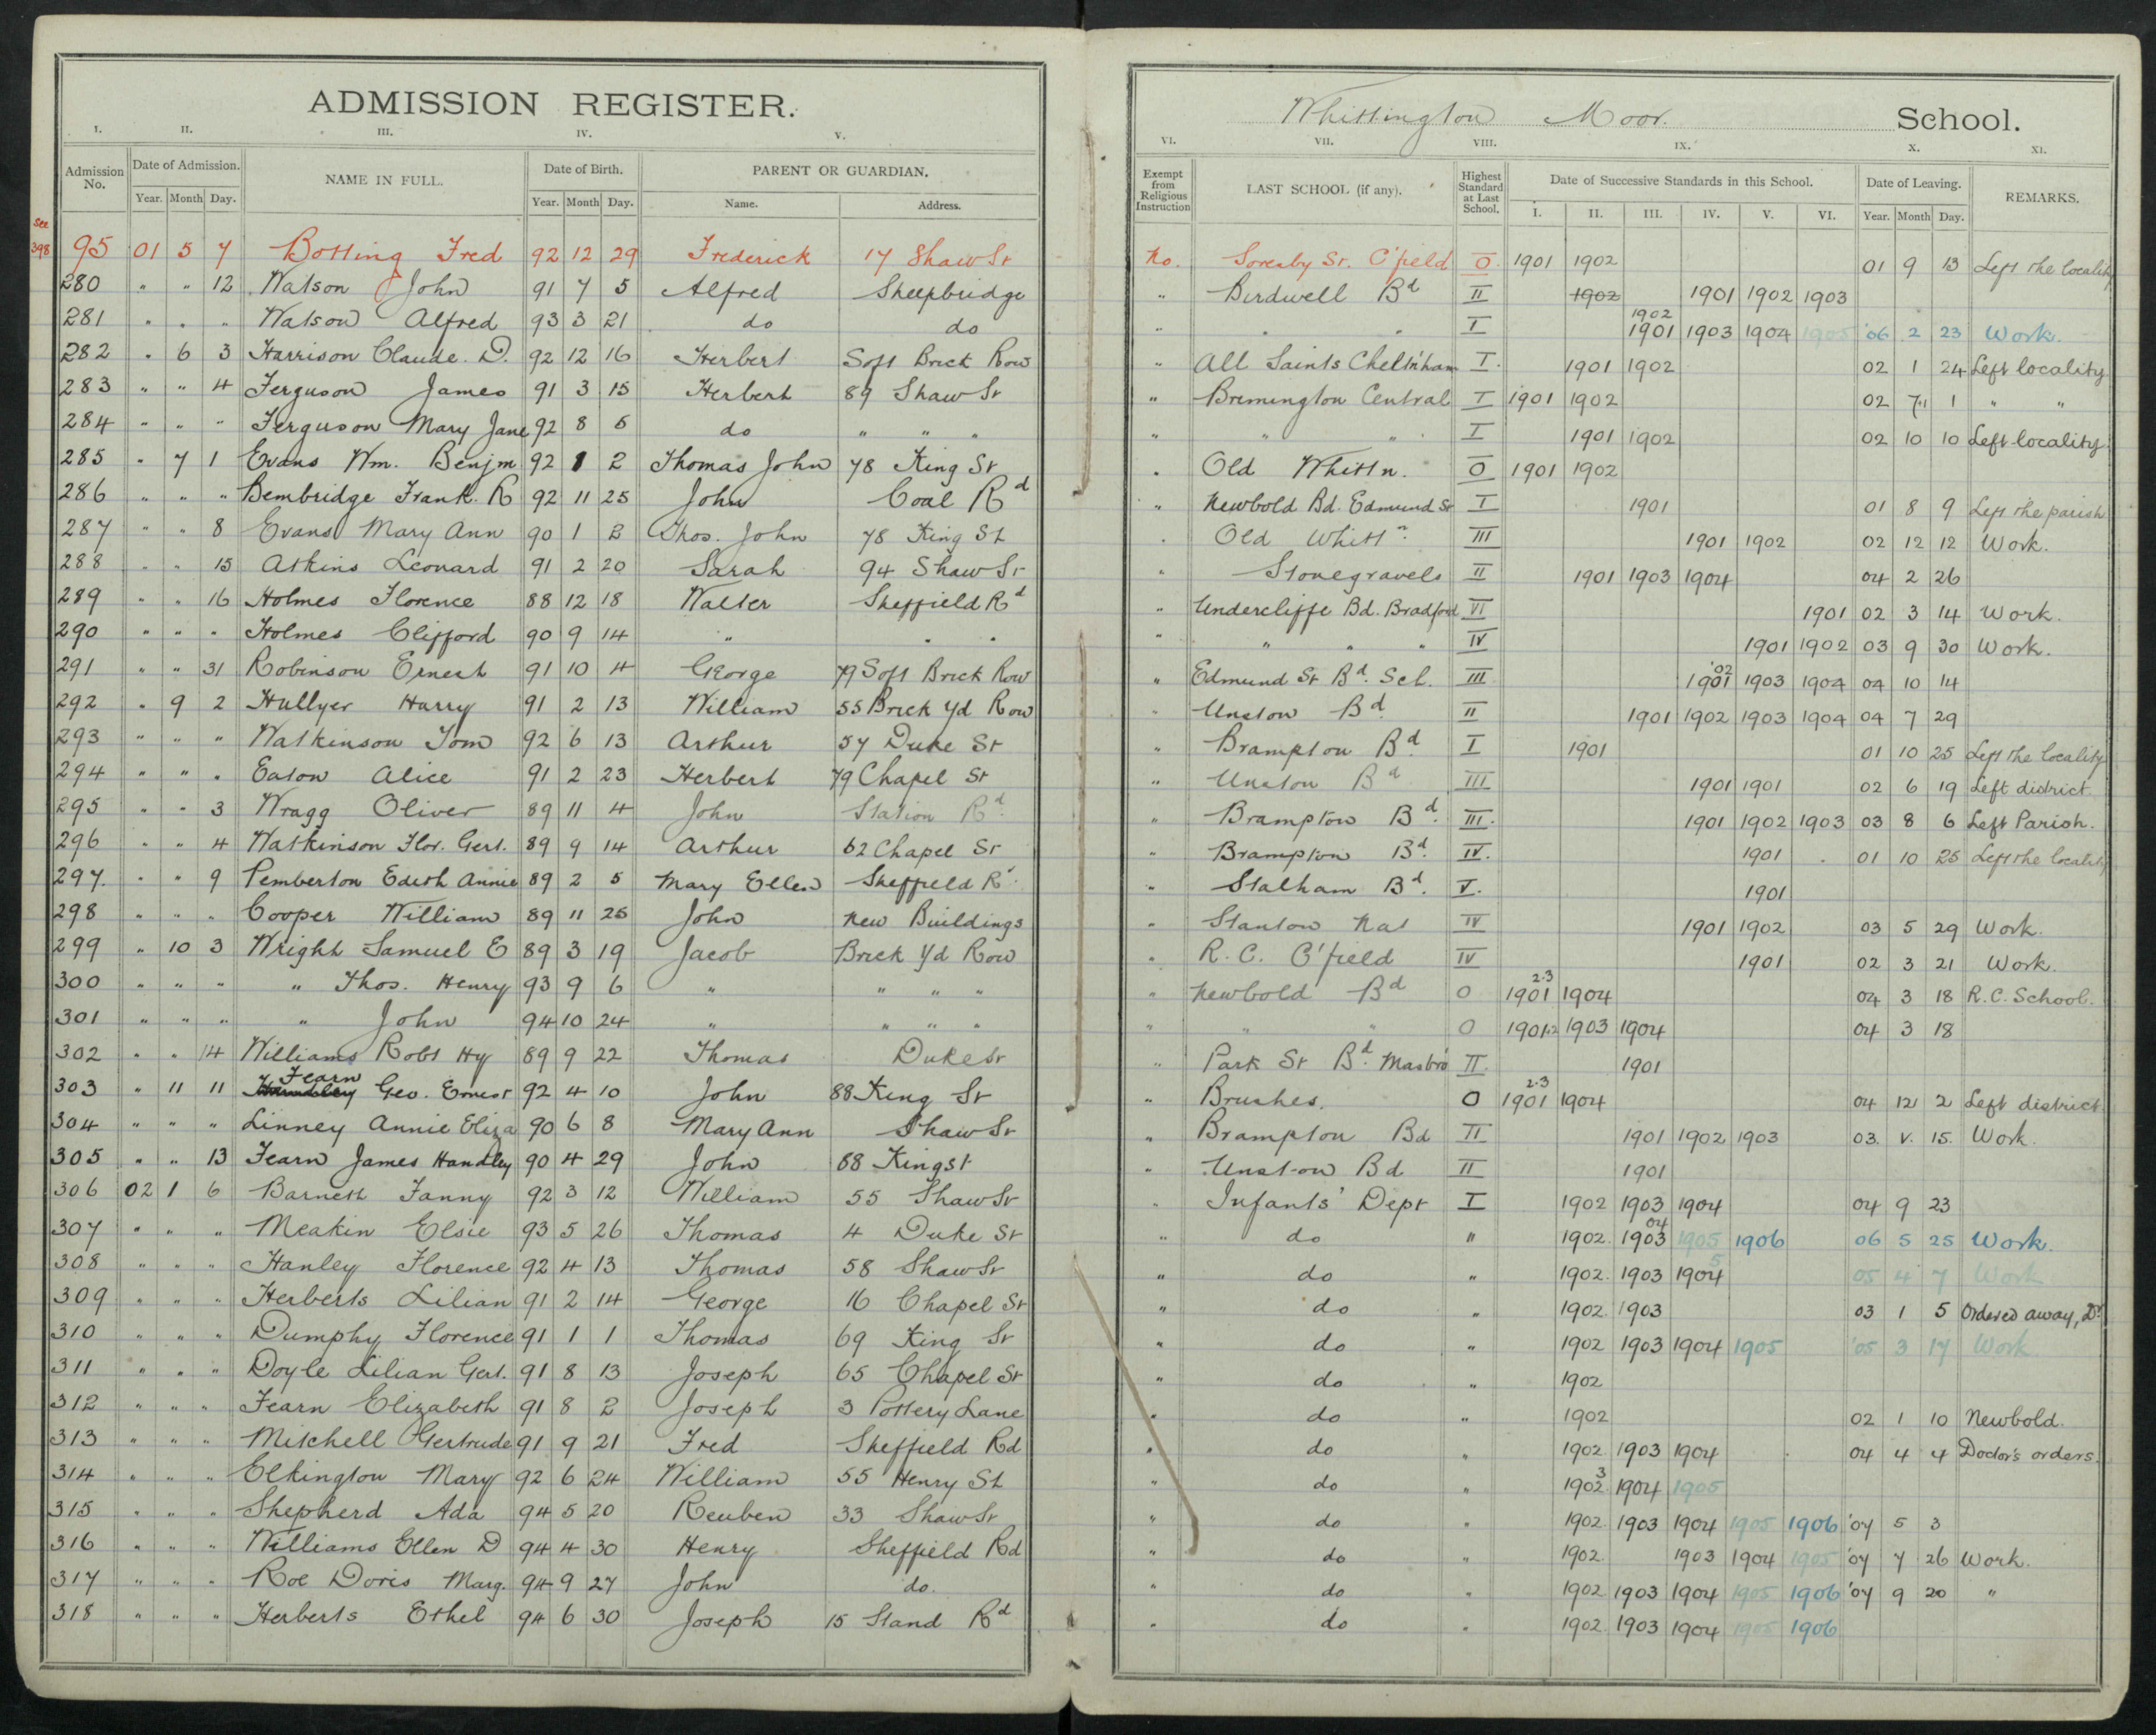 ADMISSION REGISTER.
I. II. III. IV. V.
Admission No. Date of Admission. NAME IN FULL. Date of Birth. PARENT OR GUARDIAN.
Year. Month Day. Year. Month Day. Name. Address.
see 398
95 01 5 7 Botting Fred 92 12 29 Frederick 17 Shaw St
280 " " 12 Watson John 91 7 5 Alfred Sheepbridge
281 " " " Watson Alfred 93 3 21 do do
282 " 6 3 Harrison Claude. D. 92 12 16 Herbert Soft Brick Row
283 " " 4 Ferguson James 91 3 15 Herbert 89 Shaw St
284 " " " Ferguson Mary Jane 92 8 5 do " " "
285 " 7 1 Evans Wm. Benjm 92 1 2 Thomas John 78 King St
286 " " " Bembridge Frank. R 92 11 25 John Coal Rd
287 " " 8 Evans Mary Ann 90 1 2 Thos. John 78 King St
288 " " 15 Atkins Leonard 91 2 20 Sarah 94 Shaw St
289 " " 16 Holmes Florence 88 12 18 Walter Sheffield Rd
290 " " " Holmes Clifford 90 9 14 " " "
291 " " 31 Robinson Ernest 91 10 4 George 79 Soft Brick Row
292 " 9 2 Hullyer Harry 91 2 13 William 55 Brick Yd Row
293 " " " Watkinson Tom 92 6 13 Arthur 57 Duke St
294 " " " Eaton Alice 91 2 23 Herbert 79 Chapel St
295 " " 3 Wragg Oliver 89 11 4 John Station Rd.
296 " " 4 Watkinson Flor. Gert. 89 9 14 Arthur 62 Chapel St
297. " " 9 Pemberton Edith Annie 89 2 5 Mary Ellen Sheffield Rd.
298 " " " Cooper William 89 11 25 John New Buildings
299 " 10 3 Wright Samuel E 89 3 19 Jacob Brick Yd Row
300 " " " " Thos. Henry 93 9 6 " " " "
301 " " " " John 94 10 24 " " " "
302 " " 14 Williams Robt Hy 89 9 22 Thomas Duke St
303 " 11 11 Fearn Geo. Ernest 92 4 10 John 88 King St
304 " " " Linney Annie Eliza 90 6 8 Mary Ann Shaw St
305 " " 13 Fearn James Handley 90 4 29 John 88 King St
306 02 1 6 Barnett Fanny 92 3 12 William 55 Shaw St
307 " " " Meakin Elsie 93 5 26 Thomas 4 Duke St
308 " " " Hanley Florence 92 4 13 Thomas 58 Shaw St
309 " " " Herberts Lilian 91 2 14 George 16 Chapel St
310 " " " Dumphy Florence 91 1 1 Thomas 69 King St
311 " " " Doyle Lilian Gert. 91 8 13 Joseph 65 Chapel St
312 " " " Fearn Elizabeth 91 8 2 Joseph 3 Pottery Lane
313 " " " Mitchell Gertrude 91 9 21 Fred Sheffield Rd
314 " " " Elkington Mary 92 6 24 William 55 Henry St
315 " " " Shepherd Ada 94 5 20 Reuben 33 Shaw St
316 " " " Williams Ellen D 94 4 30 Henry Sheffield Rd
317 " " " Roe Doris Marg. 94 9 27 John do.
318 " " " Herberts Ethel 94 6 30 Joseph 15 Stand Rd
Whittington Moor. School.
VI. VII. VIII. IX. X. XI.
Exempt from Religious Instruction LAST SCHOOL (if any). Highest Standard at Last School. Date of Successive Standards in this School. Date of Leaving. REMARKS.
I. II. III. IV. V. VI. Year. Month Day.
No. Soresby St. C'field O. 1901 1902 01 9 13 Left the locality
" Birdwell Bd II 1902 1901 1902 1903
" " " I 1902 1901 1903 1904 1905 '06 2 23 Work.
" All Saints Chelt'nham I. 1901 1902 02 1 24 Left locality
" Brimington Central I 1901 1902 02 7 1 " "
" " " I 1901 1902 02 10 10 Left locality.
" Old Whittn. O 1901 1902
" Newbold Bd. Edmund St I 1901 01 8 9 Left the parish
" Old Whittn. III 1901 1902 02 12 12 Work.
" Stonegravels II 1901 1903 1904 04 2 26
" Undercliffe Bd. Bradford VI 1901 02 3 14 Work.
" " " " IV 1901 1902 03 9 30 Work.
" Edmund St Bd. Sch. III '02 1901 1903 1904 04 10 14
" Unston Bd II 1901 1902 1903 1904 04 7 29
" Brampton Bd. I 1901 01 10 25 Left the locality
" Unston Bd III 1901 1901 02 6 19 Left district.
" Brampton Bd. III. 1901 1902 1903 03 8 6 Left Parish.
" Brampton Bd. IV. 1901 01 10 25 Left the locality
" Stalham Bd. V. 1901
" Stanton Nat IV 1901 1902 03 5 29 Work.
" R. C. C'field IV 1901 02 3 21 Work.
" Newbold Bd O 2.3 1901 1904 04 3 18 R.C. School.
" " " O 1901.2 1903 1904 04 3 18
" Park St Bd. Masbro II. 1901
" Brushes. O 2.3 1901 1904 04 12 2 Left district
" Brampton Bd II 1901 1902 1903 03. V. 15. Work.
" Unston Bd II 1901
" Infants' Dept I 1902 1903 1904 04 9 23
" do " 1902. 1903 04 1905 1906 06 5 25 Work.
" do " 1902. 1903 1904 5 05 4 7 Work
" do " 1902. 1903 03 1 5 Ordered away, Dr.
" do " 1902 1903 1904 1905 '05 3 17 Work
" do " 1902
" do " 1902 02 1 10 Newbold.
" do " 1902 1903 1904 04 4 4 Doctor's orders.
" do " 1902 3 1904 1905
" do " 1902. 1903 1904 1905 1906 '07 5 3
" do " 1902. 1903 1904 1905 '07 7 26 Work.
" do " 1902 1903 1904 1905 1906 '07 9 20 "
" do " 1902. 1903 1904 1905 1906